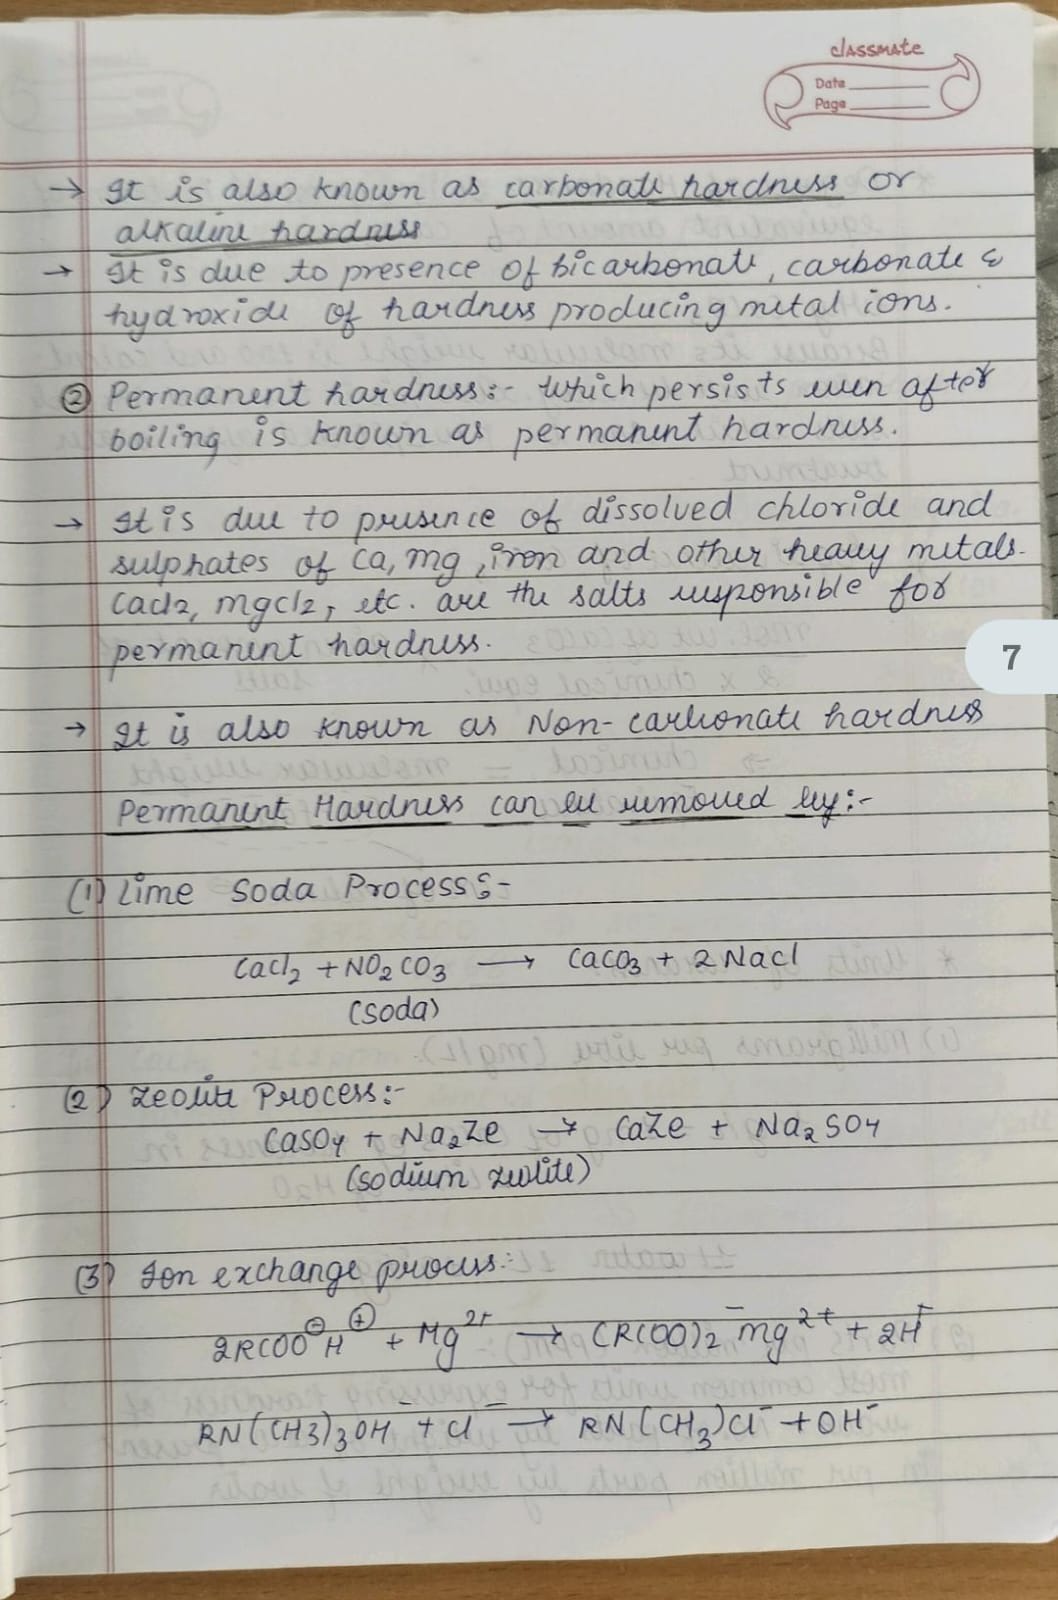 classmate
Date
Page
→ It is also known as carbonate hardness or
alkaline hardness
→ It is due to presence of bicarbonate, carbonate &
hydroxide of hardness producing metal ions.
② Permanent hardness:- which persists even after
boiling is known as permanent hardness.
→ It is due to presence of dissolved chloride and
sulphates of Ca, mg, iron and other heavy metals.
Cacl2, mgcl2, etc. are the salts responsible for
permanent hardness.
7
→ It is also known as Non-carbonate hardness
Permanent Hardness can be removed by:-
(1) Lime Soda Process:-
CaCl2 + NO2CO3 → CaCO3 + 2NaCl
(soda)
(2) Zeolite Process:-
CaSO4 + Na2Ze → CaZe + Na2SO4
(sodium zeolite)
(3) Ion exchange process:-
2RCOO⊖H⊕ + Mg2+ → (RCOO)2¯ mg2+ + 2H+
RN(CH3)3OH¯ + Cl¯ → RN(CH3)Cl¯ + OH¯